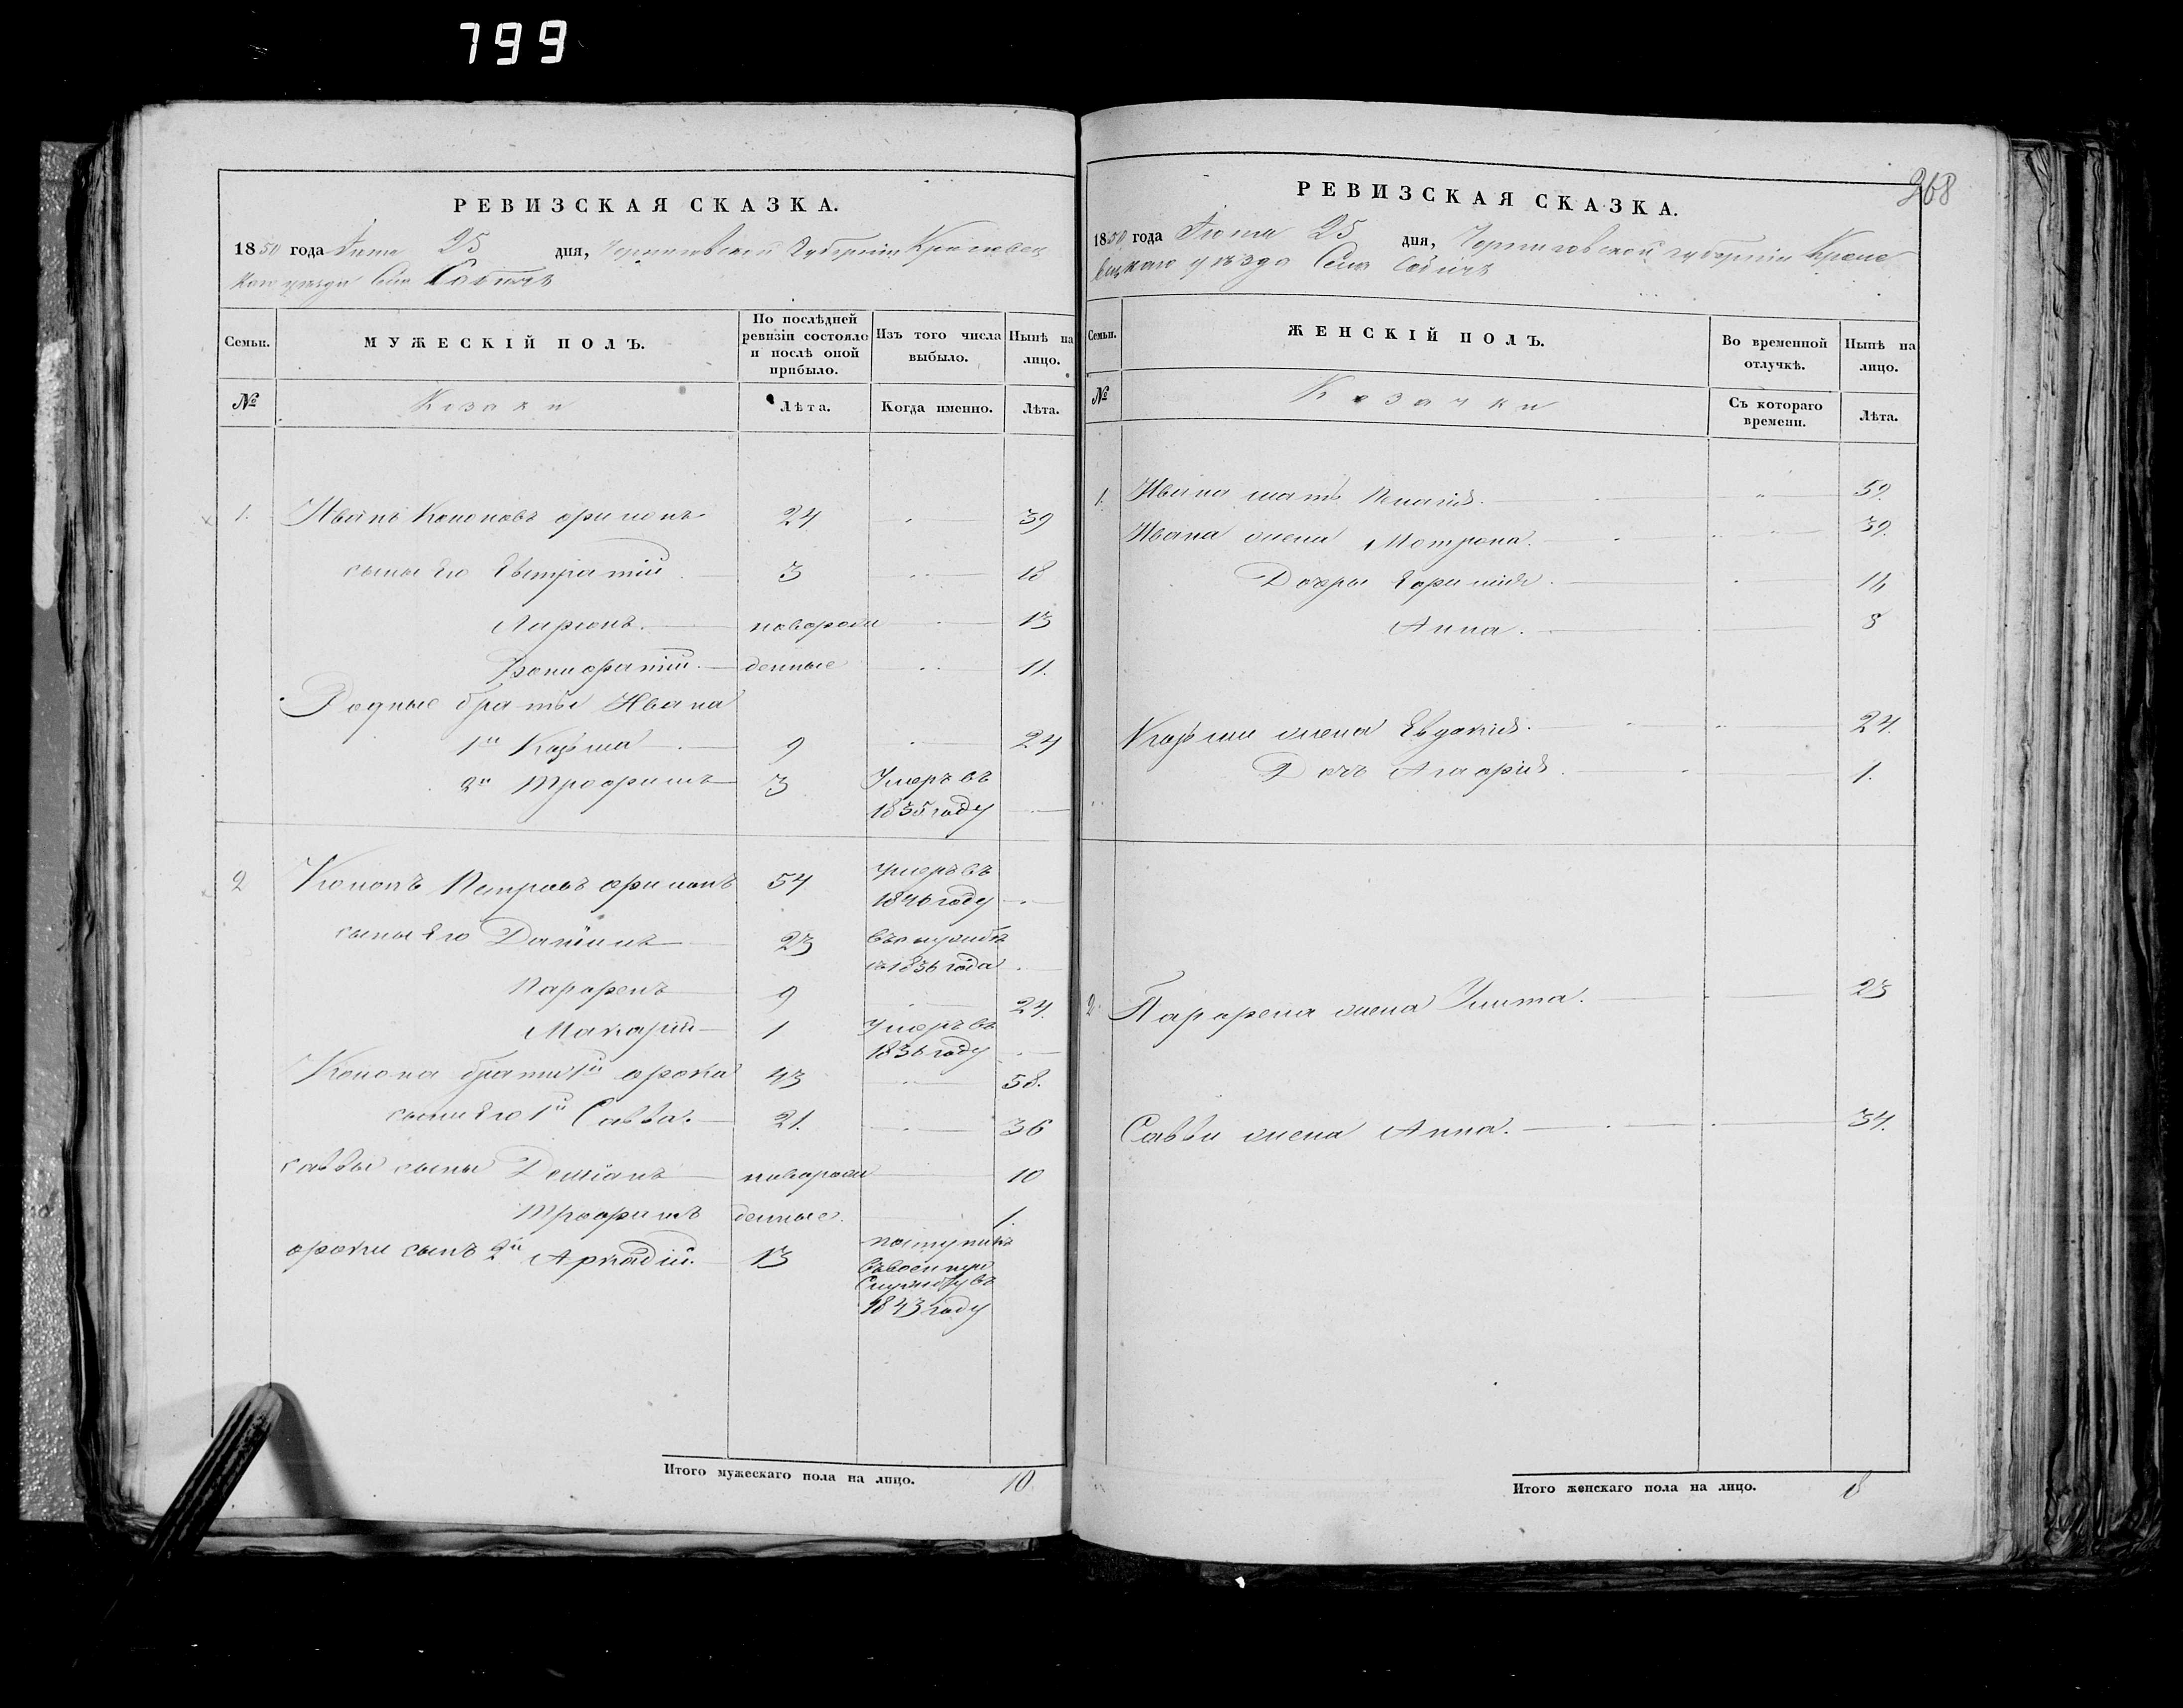 799
РЕВИЗСКАЯ СКАЗКА.
1850 года 25 дня, Черниговской Губерніи Кролевец
каго уезда Село Собичъ
Семьи. МУЖЕСКІЙ ПОЛЪ. По послѣдней ревизіи состояло и послѣ оной прибыло. Изъ того числа выбыло. Нынѣ на лицо.
№ Козаки Лѣта. Когда именно. Лѣта.
1. Иванъ Кононовъ 24 39
сыны Его Евстратій 3 18
новорож 13
денные 11.
Родные братья Ивана
1й Козьма 9 24
2й Трофимъ 3 Умеръ въ
1835 году
2 Кононъ Петровъ 54 умеръ въ
1846 году
сыны Его Даніилъ 23 въ службѣ
съ 1836 года
Парфенъ 9 24.
Макарій 1 Умеръ въ
1836 году
Конона братъ 1й 43 58.
сынъ Его 1й Савва. 21. 36
саввы сыны Деміанъ новорож 10
Трофимъ денные. 1.
сынъ 2й Аркадій. 13 поступилъ
въ военную
Службу въ
1843 году
Итого мужескаго пола на лицо. 10
268
РЕВИЗСКАЯ СКАЗКА.
1850 года 25 дня, Черниговской губерніи Кроле
вецкаго уѣзда Села Собичъ
Семьи. ЖЕНСКІЙ ПОЛЪ. Во временной отлучкѣ. Нынѣ на лицо.
№ Козачки Съ котораго времени. Лѣта.
1. Ивана мать 59.
Ивана жена Мотрона. 39.
Дочери Ефимія.
Анна. 8
Козьмы жена Евдокія. 24.
Дочь 1.
2. Парфена жена Улита. 23
Саввы жена Анна. 34.
Итого женскаго пола на лицо. 8